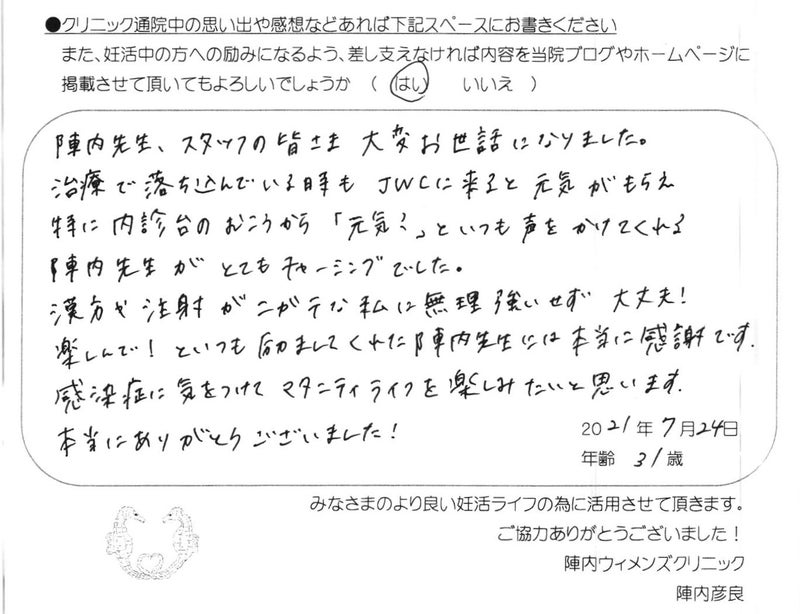 ●クリニック通院中の思い出や感想などあれば下記スペースにお書きください
また、妊活中の方への励みになるよう、差し支えなければ内容を当院ブログやホームページに
掲載させて頂いてもよろしいでしょうか （ はい　いいえ ）
陣内先生、スタッフの皆さま 大変お世話になりました。
治療で落ち込んでいる時も JWCに来ると元気がもらえ
特に内診台のむこうから「元気？」といつも声をかけてくれる
陣内先生が とてもチャーミングでした。
漢方や注射がニガテな私に無理強いせず 大丈夫！
楽しんで！といつも励ましてくれた陣内先生には本当に感謝です.
感染症に気をつけて マタニティライフを楽しみたいと思います.
本当にありがとうございました！
2021年7月24日
年齢 31歳
みなさまのより良い妊活ライフの為に活用させて頂きます。
ご協力ありがとうございました！
陣内ウィメンズクリニック
陣内彦良